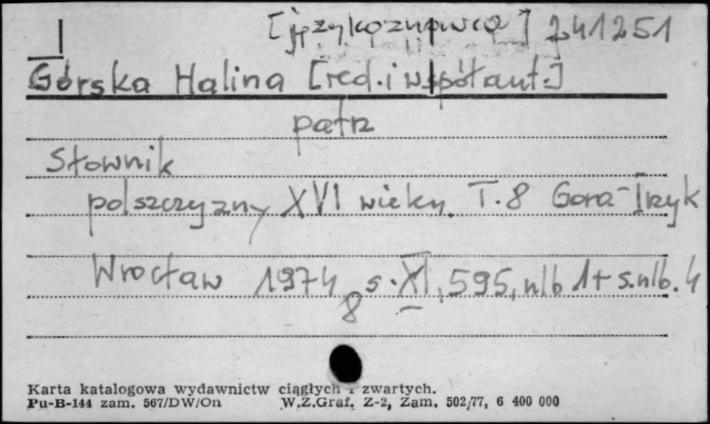 I [językoznawca] 241251
Górska Halina [red. i współaut.]
patrz
Słownik
polszczyzny XVI wieku. T. 8 Gora-Irzyk
Wrocław 1974 8 s. XI, 595, nlb 1 + s. nlb. 4
Karta katalogowa wydawnictw ciągłych i zwartych.
Pu-B-144 zam. 567/DW/On W.Z.Graf. Z-2, Zam. 502/77, 6 400 000